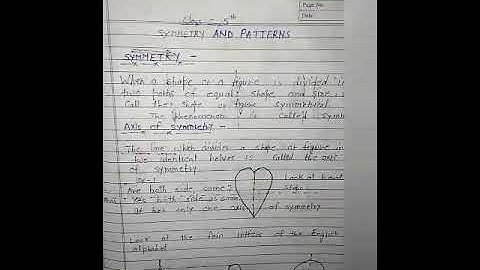 Page No.
Date
Class - 5th
SYMMETRY AND PATTERNS
SYMMETRY -
When a shape or a figure is divided in
two halfs of equal shape and size,
Call the shape or figure symmetrical
The phenomenon is called symm
Axis of symmetry -
The line when divides a shape or figure in
two identical halves is called the axis
of symmetry
Are both side same ? Look at heart
Yes both side is same shape
It has only one axis of symmetry
Look at the few letters of the English
alphabet